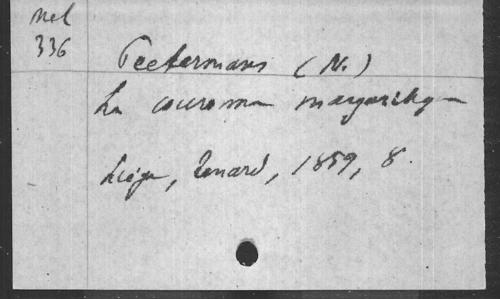 mel
336
Peetermans (N.)
La couronne margaritique
Liége, Renard, 1859, 8.